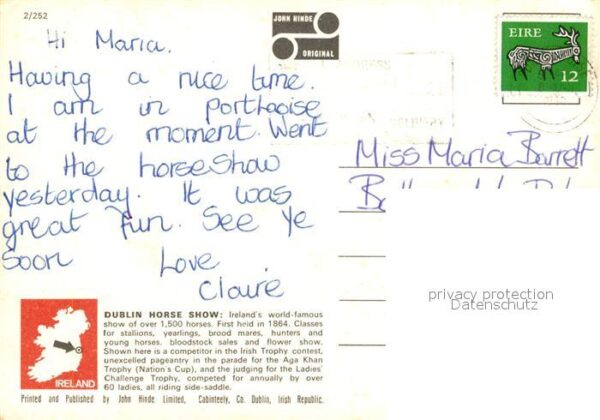 2/252
JOHN HINDE
ORIGINAL
EIRE
12
Hi Maria.
Having a nice time.
I am in portlaoise
at the moment. Went
to the horseshow
yesterday. It was
great fun. See Ye
soon Love
Claire
Miss Maria Barrett
privacy protection
Datenschutz
IRELAND
DUBLIN HORSE SHOW: Ireland's world-famous
show of over 1,500 horses. First held in 1864. Classes
for stallions, yearlings, brood mares, hunters and
young horses. bloodstock sales and flower show.
Shown here is a competitor in the Irish Trophy contest,
unexcelled pageantry in the parade for the Aga Khan
Trophy (Nation's Cup), and the judging for the Ladies'
Challenge Trophy, competed for annually by over
60 ladies, all riding side-saddle.
Printed and Published by John Hinde Limited, Cabinteely, Co. Dublin, Irish Republic.